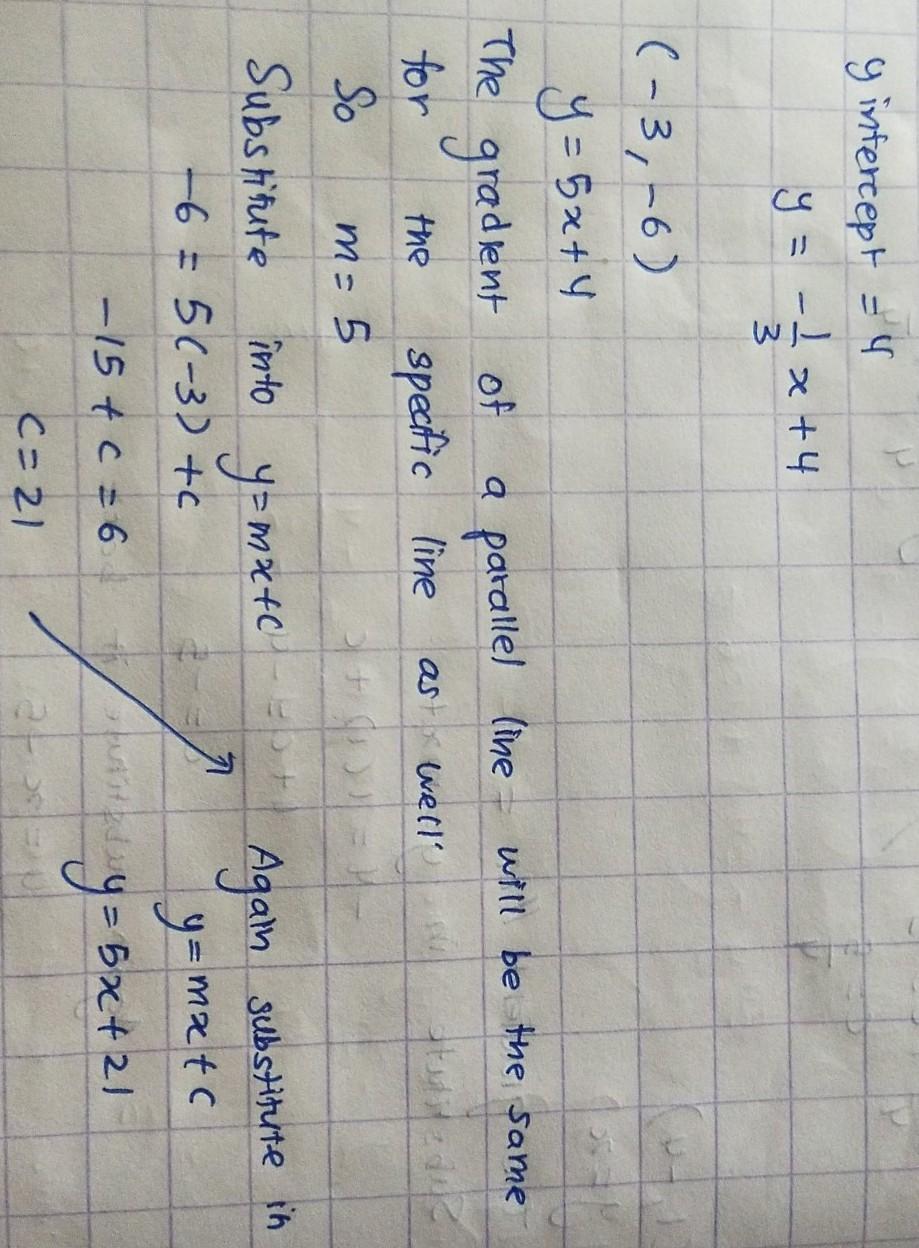 y intercept = 4
y = -1/3 x + 4
(-3, -6)
y = 5x + 4
The gradient of a parallel line will be the same
for the specific line as well.
So m = 5
Substitute into y = mx + c
-6 = 5(-3) + c
-15 + c = 6
c = 21
Again substitute in
y = mx + c
y = 5x + 21